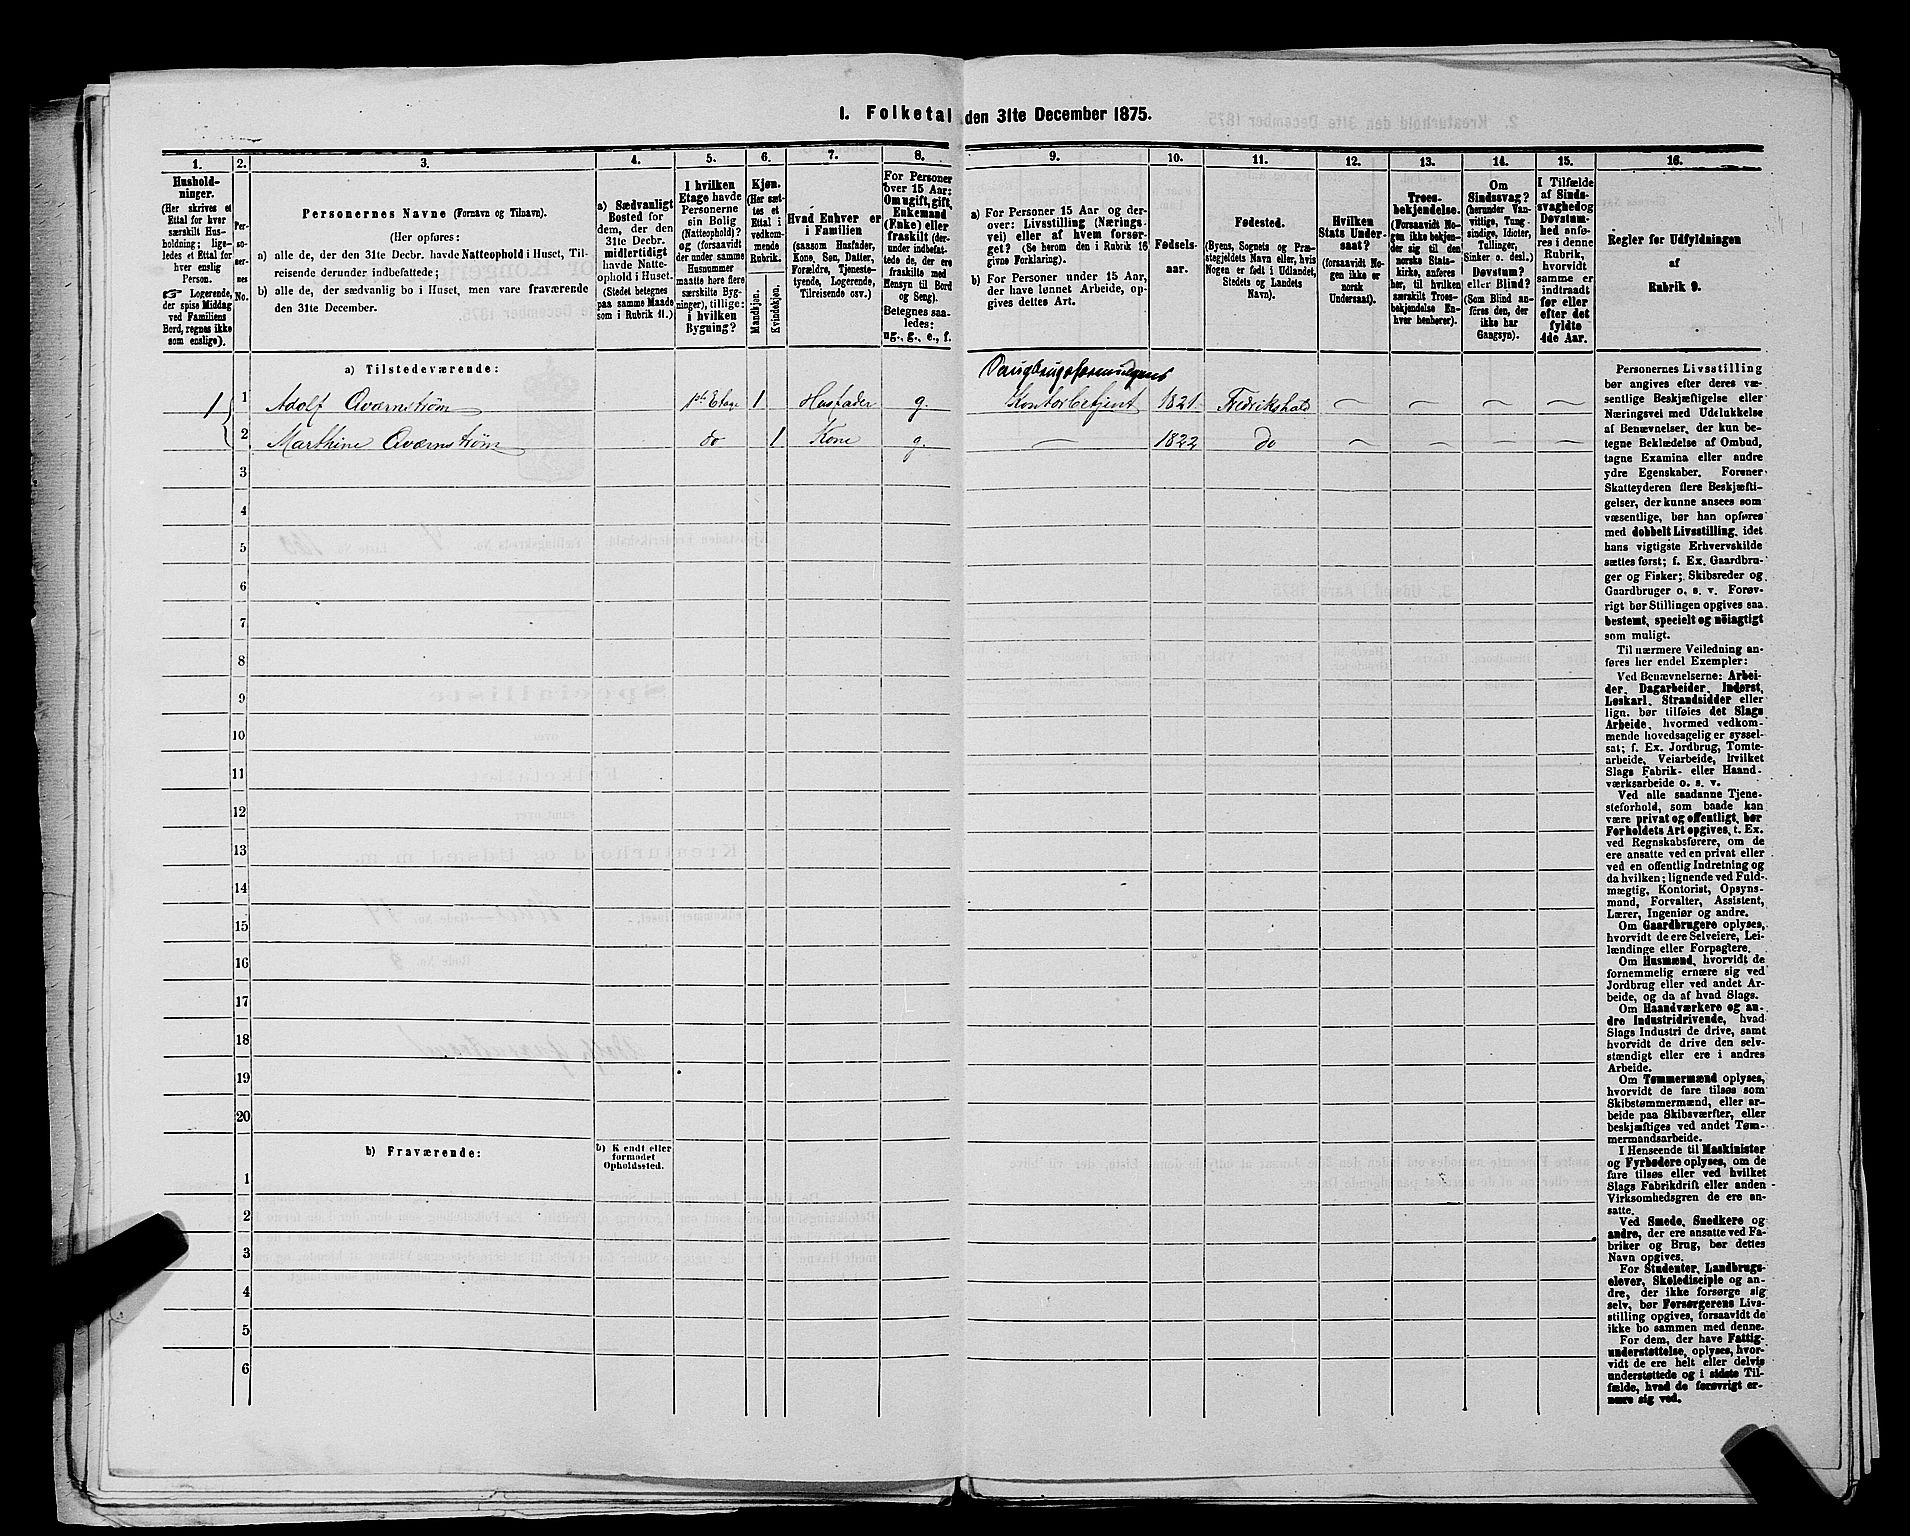 1. Folketal den 31te December 1875.
1. 2. 3. 4. 5. 6. 7. 8. 9. 10. 11. 12. 13. 14. 15. 16.
Hushold-
ninger.
(Her skrives et
Ettal for hver
særskilt Hus-
holdning; lige-
ledes et Ettal for
hver enslig
Person.
☞ Logerende,
der spise Middag
ved Familiens
Bord, regnes ikke
som enslige).
Per-
so-
ner-
nes
No.
Personernes Navne (Fornavn og Tilnavn).
(Her opføres:
a) alle de, der den 31te Decbr. havde Natteophold i Huset, Til-
reisende derunder indbefattede;
b) alle de, der sædvanlig bo i Huset, men vare fraværende
den 31te December.
a) Sædvanligt
Bosted for
dem, der den
31te Decbr.
midlertidigt
havde Natte-
ophold i Huset.
(Stedet betegnes
paa samme Maade
som i Rubrik 11.)
I hvilken
Etage havde
Personerne
sin Bolig
(Natteophold)?
og (forsaavidt
der under samme
Husnummer
maatte høre flere
særskilte Byg-
ninger), tillige:
i hvilken
Bygning?
Kjøn.
(Her sæt-
tes et
Ettal i
vedkom-
mende
Rubrik.
Mandkjøn.
Kvindekjøn.
Hvad Enhver er
i Familien
(saasom Husfader,
Kone, Søn, Datter,
Forældre, Tjeneste-
tyende, Logerende,
Tilreisende osv.)
For Personer
over 15 Aar:
Om ugift, gift,
Enkemand
(Enke) eller
fraskilt (der-
under indbefat-
tede de, der ere
fraskilte med
Hensyn til Bord
og Seng).
Betegnes saa-
ledes:
ug., g., e., f.
a) For Personer 15 Aar og der-
over: Livsstilling (Nærings-
vei) eller af hvem forsør-
get? (Se herom den i Rubrik 16
givne Forklaring).
b) For Personer under 15 Aar,
der have lønnet Arbeide, op-
gives dettes Art.
Fødsels-
aar.
Fødested.
(Byens, Sognets og Præ-
stegjeldets Navn eller, hvis
Nogen er født i Udlandet,
Stedets og Landets
Navn).
Hvilken
Stats Under-
saat?
(forsaavidt No-
gen ikke er
norsk
Undersaat).
Troes-
bekjendelse.
(Forsaavidt No-
gen ikke bekjen-
der sig til den
norske Stats-
kirke, anføres
her, til hvilken
særskilt Troes-
bekjendelse En-
hver henhører).
Om
Sindssvag?
(herunder Van-
vittige, Tung-
sindige, Idioter,
Tullinger,
Sinker o. desl.)
Døvstum?
eller Blind?
(Som Blind an-
føres den, der
ikke har
Gangsyn).
I Tilfælde
af Sinds-
svaghed og
Døvstum-
hed anfø-
res i denne
Rubrik,
hvorvidt
samme er
indtraadt
før eller
efter det
fyldte
4de Aar.
Regler for Udfyldningen
af
Rubrik 9.
a) Tilstedeværende:
1 1 Adolf Qværnstrøm 1ste Etage 1 Husfader g. Kontorbetjent 1821 Fredrikshald
2 Marthine Qværnstrøm do 1 Kone g. — 1822 do
3
4
5
6
7
8
9
10
11
12
13
14
15
16
17
18
19
20
b) Fraværende:
b) Kendt eller
formodet
Opholdssted.
1
2
3
4
5
6
Personernes Livsstilling
bør angives efter deres væ-
sentlige Beskjæftigelse eller
Næringsvei med Udelukkelse
af Benævnelser, der kun be-
tegne Beklædelse af Ombud,
tagne Examina eller andre
ydre Egenskaber. Forener
Skatteyderen flere Beskjæfti-
gelser, der kunne ansees som
væsentlige, bør han opføres
med dobbelt Livsstilling, idet
hans vigtigste Erhvervskilde
sættes først; f. Ex. Gaardbru-
ger og Fisker; Skibsreder og
Gaardbruger o. s. v. Forøv-
rigt bør Stillingen opgives saa
bestemt, specielt og nöiagtigt
som muligt.
Til nærmere Veiledning an-
føres her endel Exempler:
Ved Benævnelserne: Arbei-
der, Dagarbeider, Inderst,
Løskarl, Strandsidder eller
lign. bør tilføies det Slags
Arbeide, hvormed vedkom-
mende hovedsagelig er syssel-
sat; f. Ex. Jordbrug, Tomte-
arbeide, Veiarbeide, hvilket
Slags Fabrik- eller Haand-
værksarbeide o. s. v.
Ved alle saadanne Tjene-
steforhold, som baade kan
være privat og offentligt, bør
Forholdets Art opgives, t. Ex.
ved Regnskabsførere, om de
ere ansatte ved en privat eller
ved en offentlig Indretning og
da hvilken; lignende ved Fuld-
mægtig, Kontorist, Opsyns-
mand, Forvalter, Assistent,
Lærer, Ingeniør og andre.
Om Gaardbrugere oplyses,
hvorvidt de ere Selveiere, Lei-
lændinge eller Forpagtere.
Om Husmænd, hvorvidt de
fornemmelig ernære sig ved
Jordbrug eller ved andet Ar-
beide, og da af hvad Slags.
Om Haandværkere og an-
dre Industridrivende, hvad
Slags Industri de drive, samt
hvorvidt de drive den selv-
stændigt eller ere i andres
Arbeide.
Om Tømmermænd oplyses,
hvorvidt de fare tilsøs som
Skibstømmermænd, eller ar-
beide paa Skibsværfter, eller
beskjæftiges ved andet Tøm-
mermandsarbeide.
I Henseende til Maskinister
og Fyrbødere oplyses, om de
fare tilsøs eller ved hvilket
Slags Fabrikdrift eller anden
Virksomhedsgren de ere an-
satte.
Ved Smede, Snedkere og
andre, der ere ansatte ved Fa-
briker og Brug, bør dettes
Navn opgives.
For Studenter, Landbrugs-
elever, Skoledisciple og an-
dre, der ikke forsørge sig
selv, bør Forsørgerens Livs-
stilling opgives, forsaavidt de
ikke bo sammen med denne.
For dem, der have Fattig-
understøttelse, oplyses, hvor-
vidt de ere helt eller delvis
understøttede og i sidste Til-
fælde, hvad de forøvrigt er-
nære sig ved.